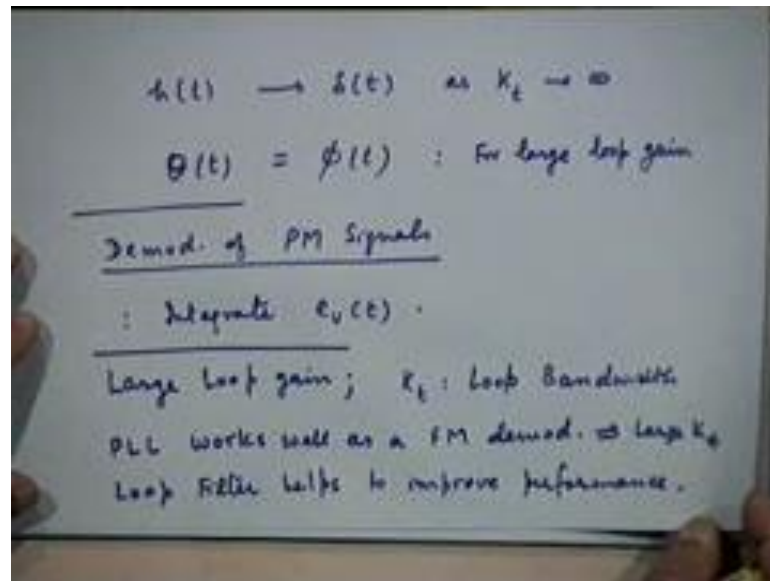 h(t) → δ(t) as K_t → ∞
θ(t) = φ(t) : For large loop gain
Demod. of PM Signals
: Integrate e_v(t) .
Large Loop gain; K_t : Loop Bandwidth
PLL works well as a FM demod. ⇒ large K_t
Loop Filter helps to improve performance.